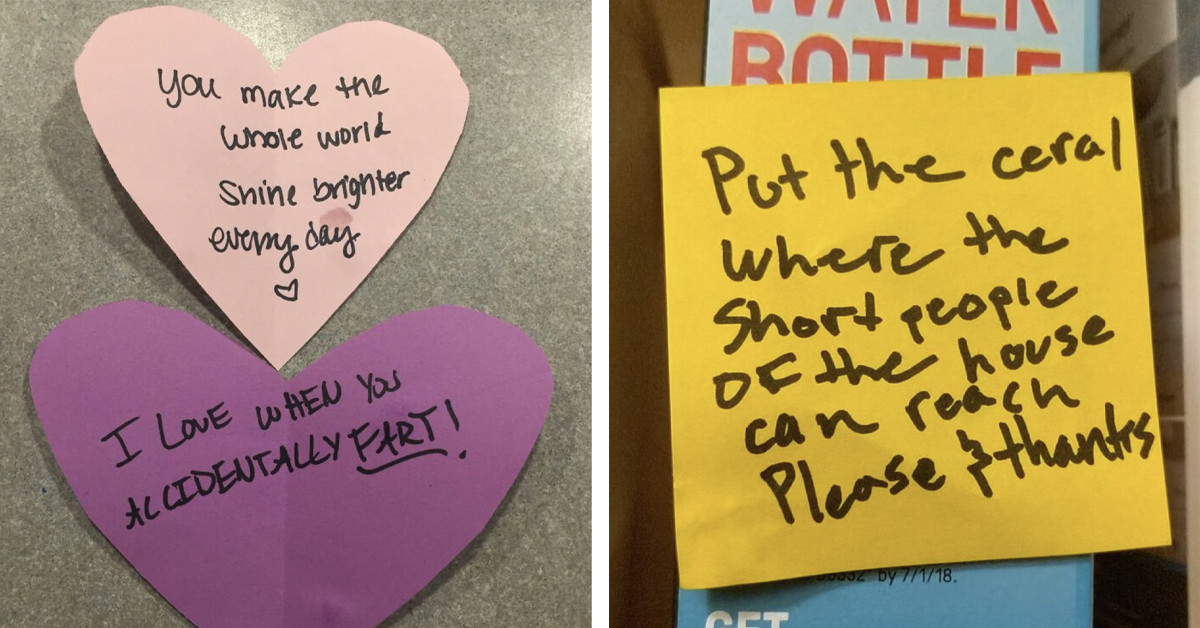 You make the
whole world
shine brighter
every day
I LOVE WHEN YOU
ACCIDENTALLY FART!
WATER
BOTTLE
Put the ceral
where the
short people
OF the house
can reach
Please & thanks
by 7/1/18.
GET